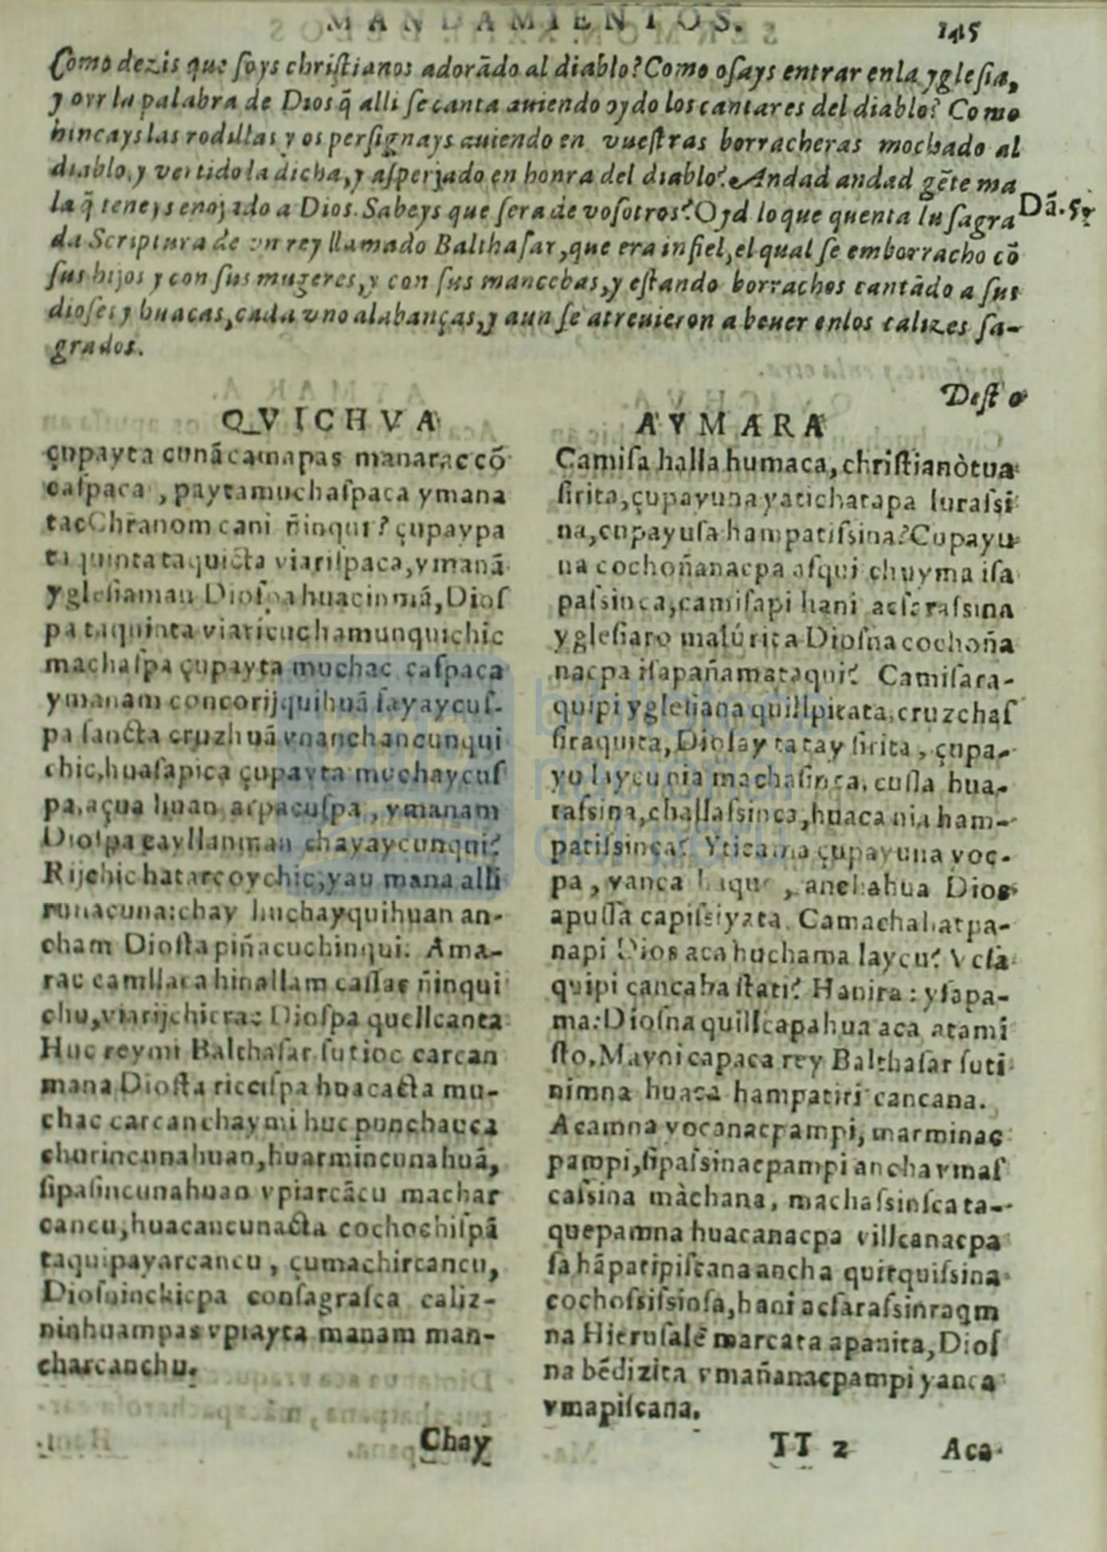 MANDAMIENTOS. 145
Como dezis que ſoys chriſtianos adorãdo al diablo? Como oſays entrar enla ygleſia,
y oyr la palabra de Dios q̃ alli ſe canta auiendo oydo los cantares del diablo? Como
hincays las rodillas y os perſignays auiendo en vueſtras borracheras mochado al
diablo, y vertido la chicha, y aſperjado en honra del diablo? Andad andad gẽte ma
la q̃ teneys enojado a Dios. Sabeys que ſera de voſotros? Oyd lo que quenta la ſagra
Dã. 5.
da Scriptura de vn rey llamado Balthaſar, que era infiel, el qual ſe emborracho cõ
ſus hijos y con ſus mugeres, y con ſus mancebas, y eſtando borrachos cantãdo a ſus
dioſes y huacas, cada vno alabanças, y aun ſe atreuieron a beuer enlos calizes ſa-
grados.
Deſto
QVICHVA
çupayta cunãcamapas manarac cõ
caſpaca, paytamuchaſpaca ymana
tac Chr̃anom cani ñinqui? çupaypa
ta quinta taquicta viariſpaca, ymanã
Ygleſiaman Dioſpa huacinmã, Dioſ
pa taquinta viaricuc hamunquichic
machaſpa çupayta muchac caſpaca
ymanam concorijquihuã ſayaycuſ-
pa ſancta cruzhuã vnanchancunqui
chic, huaſapica çupayta muchaycuſ
pa, açua huan arpacuſpa, ymanam
Dioſpa cayllanman chayaycunqui?
Rijchic hatarcoychic, yau mana alli
runacuna: chay huchayquihuan an-
cham Dioſta piñacuchinqui. Ama-
rac camllaca hinallam caſſac ñinqui
chu, viarijchicrac Dioſpa quellcanta
Huc reymi Balthaſar ſutioc carcan
mana Dioſta ricciſpa huacacta mu-
chac carcan chaymi huc punchauca
churincunahuan, huarmincunahuã,
ſipaſincunahuan vpiarcãcu machar
cancu, huacancunacta cochochiſpã
taquipayarcancu, çumachircancu,
Dioſninchicpa conſagraſca caliz-
ninhuampas vpiayta manam man-
charcanchu.
Chay
AYMARA
Camiſa halla humaca, chriſtianòtua
ſirita, çupayuna yatichatapa luraſsi
na, çupayuſa hampatiſsina? Cupayu
na cochoñanacpa aſqui chuyma iſa
paſsinca, camiſapi hani acſaraſsina
ygleſiaro malúrita Dioſna cochoña
nacpa iſapañamataqui? Camiſara-
quipi ygleſiana quillpitata, cruzchaſ
ſiraquita, Dioſay tatay ſirita, çupa-
yu laycu nia machaſinça, cuſſa hua-
raſsina, challaſsinca, huaca nia ham-
patiſsinça? çupayuna voc-
pa, yanca, anchahua Dios
apuſſa capiſsiyata. Camachahatpa-
napi Dios aca huchama laycu? Vcſa
quipi cancaha ſtati? Hanira: yſapa-
ma: Dioſna quillcapahua aca atamĩ
ſto, Mayni capaca rey Balthaſar ſuti
nimna huaca hampatiri cancana.
Acamna yocanacpampi, marminac
pampi, ſipaſsinacpampi ancha vmaſ
caſsina màchana, machaſsinſca ta-
quepamna huacanacpa villcanacpa
ſa hãpatipiſcana ancha quirquiſsina
cochoſsiſsinſa, hani acſaraſsinraqm
na Hieruſalẽ marcata apanita, Dioſ
na bẽdizita vmañanacpampi yanca
vmapiſcana.
TT 2 Aca